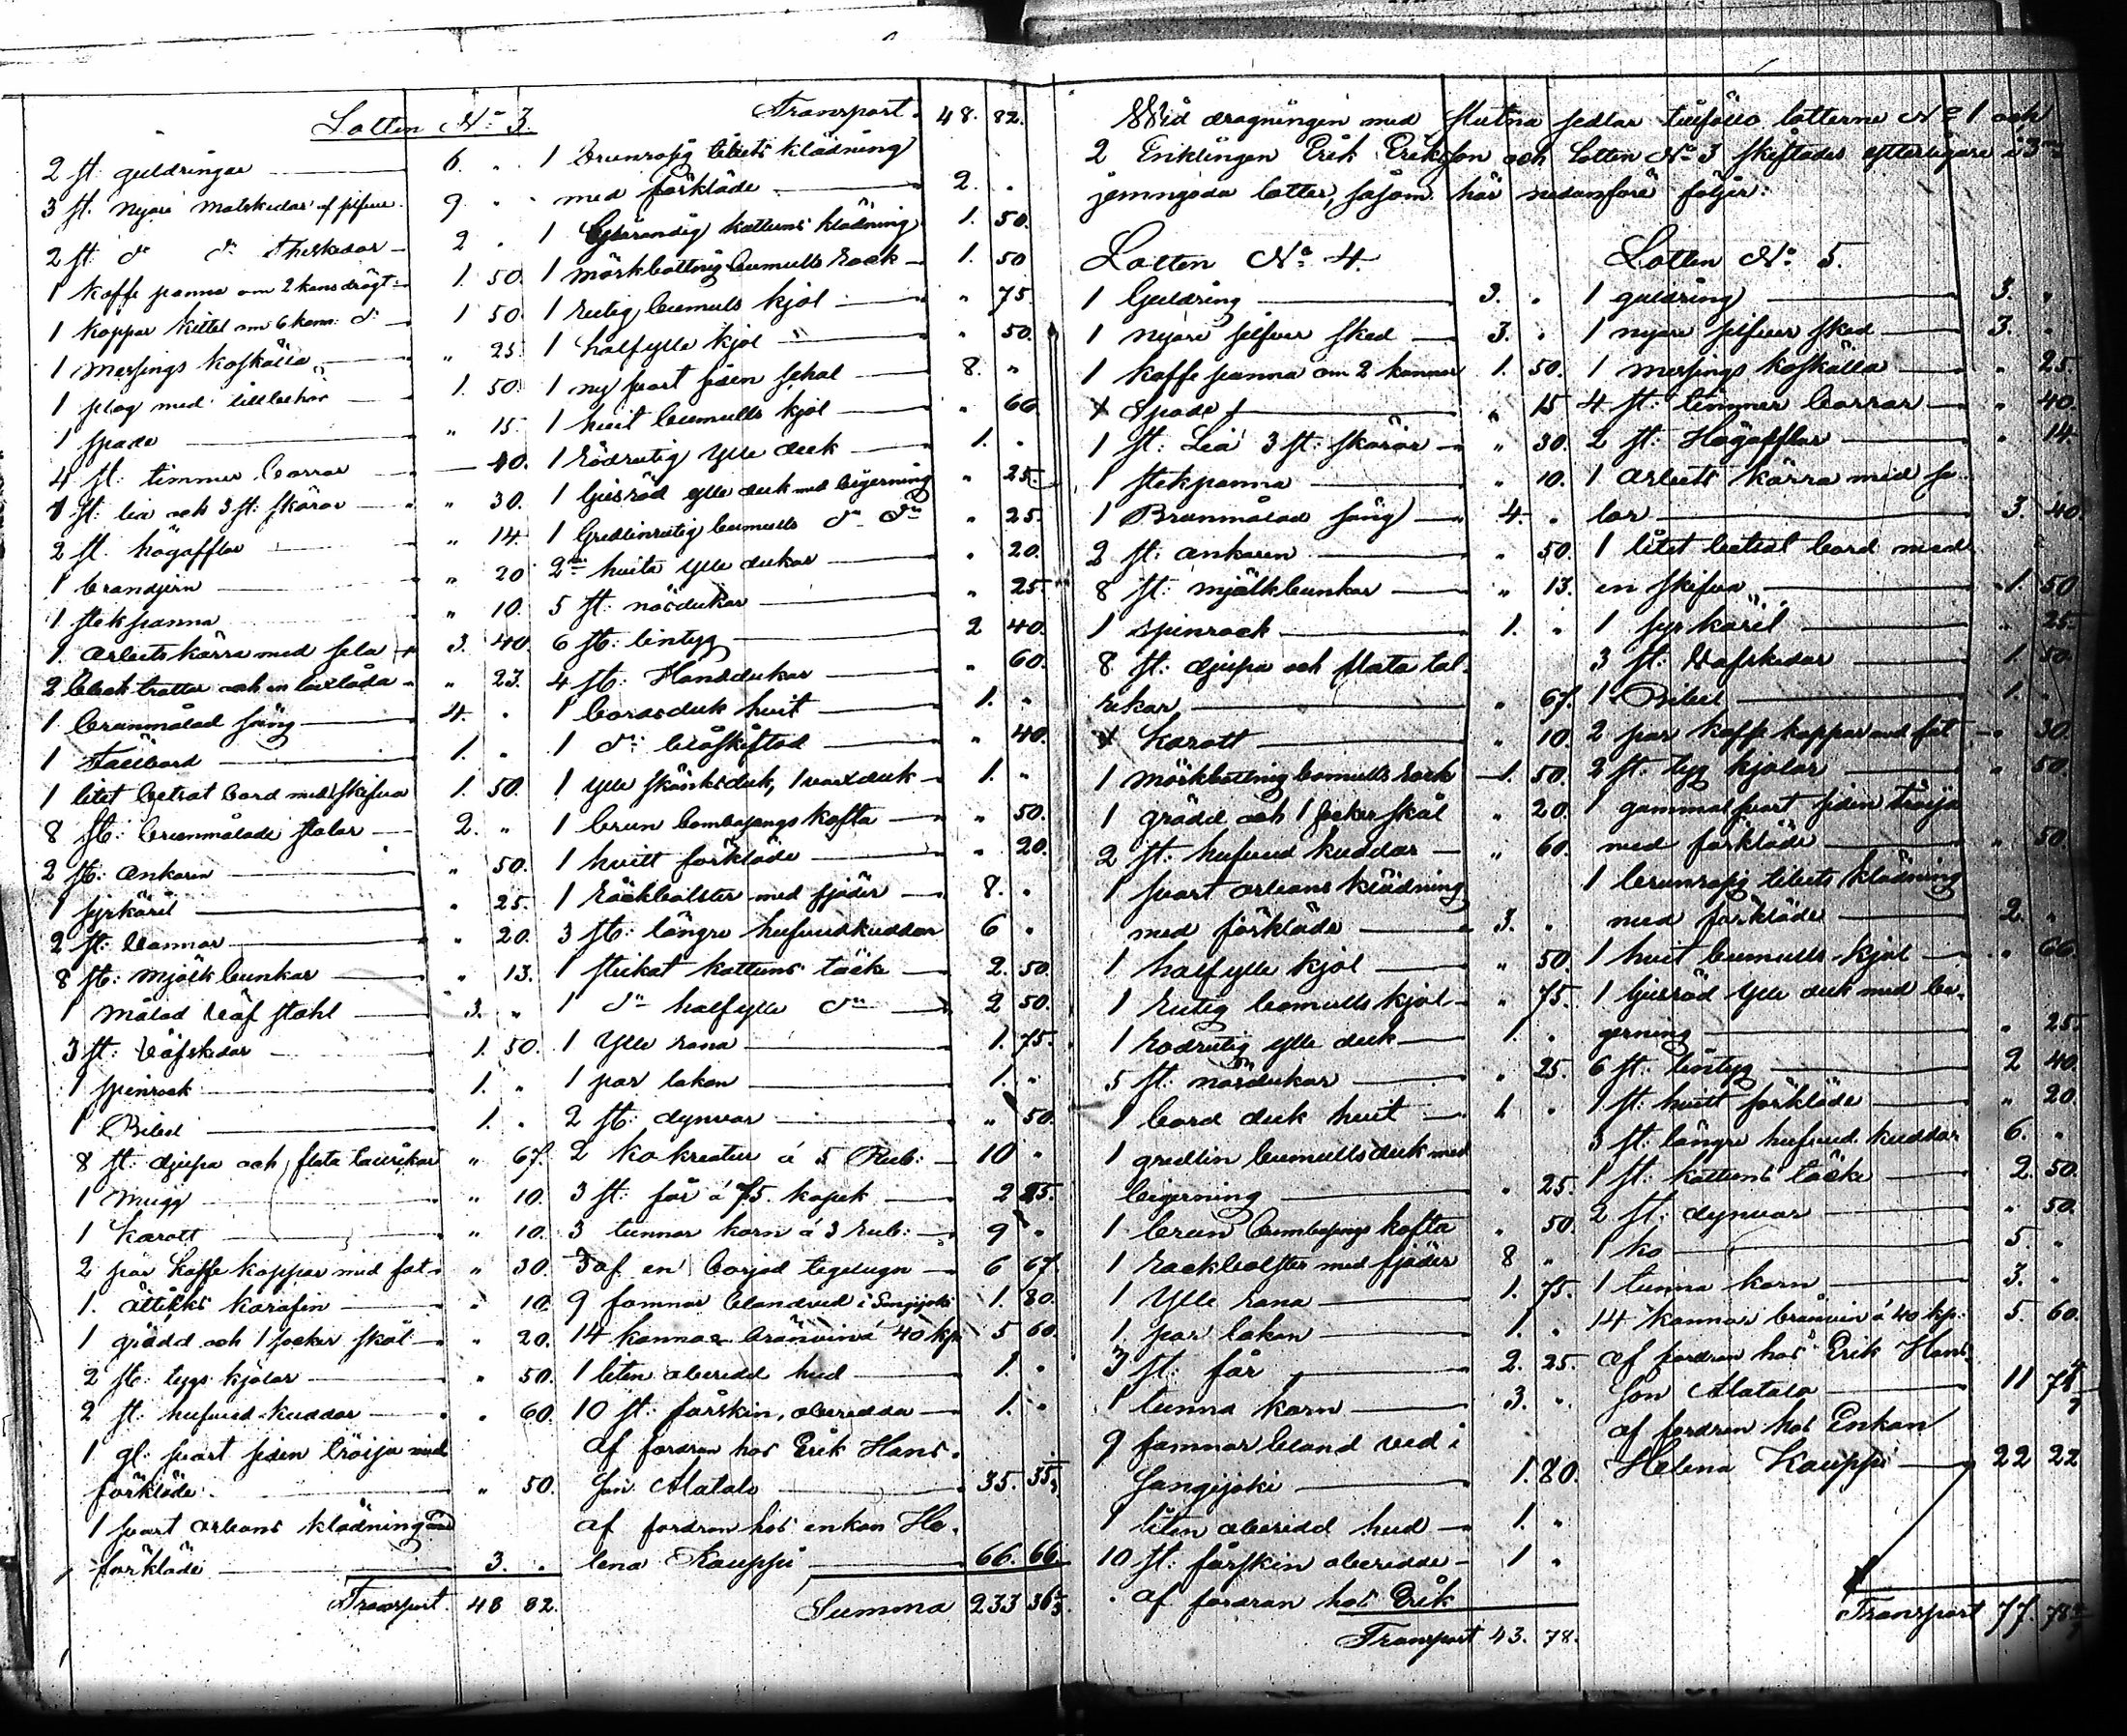 Lotten No 3.
2 st: guldringar 6. "
3 st. nyare matskedar af silfver 9 "
2 st do do Theskedar 2 "
1 Kaffe panna om 2 kans drägt 1. 50.
1 koppar kittel om 6 kann: do 1 50.
1 Messings koskälla " 25.
1 plog med tillbehör 1. 50.
1 spade " 15.
4 st: timmer borrar 40.
1 st: lia och 3 st: skäror " 30.
2 st. högafflar " 14.
1 brandjern " 20
1 stekpanna " 10.
1 arbetskärra med sela 3. 40
2 bleck trattar och en låda " 23.
1 brunmålad säng 4. "
1 Fällbord 1. "
1 litet betsat bord med skifva 1. 50.
8 st: brunmålade stolar 2. "
2 st: ankaren " 50.
1 fyrkäril " 25.
2 st: kannor " 20.
8 st: mjölk bunkar " 13.
1 målad väf stohl 3. "
3 st: väfskedar 1. 50.
1 spinrock 1. "
1 Bibel 1. "
8 st: djupa och flata tallrikar " 67.
1 mugg " 10.
1 Karott " 10.
2 par kaffe koppar med fat " 30.
1. ättikks karafin " 10.
1 grädd och 1 socker skål " 20.
2 st: tygs kjolar " 50.
2 st: hufvud kuddar " 60.
1 gl: svart siden tröija med
förkläde " 50.
1 svart orleans klädning med
förkläde 3. "
Transport. 48 82.
Transport. 48. 82.
1 brunrosig tibets klädning
med förkläde 2. "
1 gårandig kattuns klädning 1. 50.
1 mörkbottnig bumulls rock 1. 50
1 rutig bumulls kjol " 75.
1 halfylle kjol " 50.
1 ny svart siden schal 8. "
1 hvit bumulls kjol " 66
1 rödrutig ylle duk 1. "
1 ljusröd ylle duk med bigerning " 25.
1 gredlinrutig bumulls do do " 25.
2ne hvita ylle dukar " 20.
5 st: näsdukar " 25.
6 st: lintyg 2 40.
4 st: Handdukar " 60.
1 bordsduk hvit 1. "
1 do blåskiftad " 40.
1 ylle skänksduk, 1 vaxduk 1. "
1 brun bombasangs kofta " 50.
1 hvitt förkläde " 20.
1 räckbolster med fjäder 8. "
3 st: längre hufvudkuddar 6 "
1 stickat kattuns täcke 2. 50.
1 do halfylle do 2 50.
1 Ylle rana 1. 75.
1 par lakan 1. "
2 st: dynvar " 50.
2 kokreatur á 5 Rub: 10 "
3 st: får á 75. kopek 2 25.
3 tunnor korn á 3 rub: 9 "
3 af en borjad tegelugn 6 67.
9 famnar blandved i Sangijoki 1. 80.
14 kannor bränvin á 40 kp 5 60.
1 liten oberedd hud 1 "
10 st: fårskin, oberedda 1. "
af fordran hos Erik Hans-
son Alatalo 35. 35
af fordran hos enkan He-
lena Kauppi 66. 66
Summa 233 36
Wid dragningen med slutna sedlar tillföllo lotterne No 1 och
2 Enklingen Erik Eriksson och Lotten No 3 skiftades ytterligare i 3ne
jemngoda lotter, såsom här nedanföre följer:
Lotten No. 4.
1 Guldring 3. "
1 nyare silfver sked 3. "
1 kaffe panna om 2 kannor 1. 50.
1 Spade " 15
1 st: Lia 3 st: skäror " 30.
1 stekpanna " 10.
1 Brunmålad säng 4. "
2 st: ankaren " 50.
8 st: mjölkbunkar " 13.
1 spinrock 1. "
8 st: djupa och flata tal-
rikar " 67.
1 karott " 10.
1 mörkbottnig bomulls rock 1. 50.
1 grädd och 1 socker skål " 20.
2 st: hufvud kuddar " 60.
1 svart orleans klädning
med förkläde 3. "
1 halfylle kjol " 50.
1 rutig bomulls kjol " 75.
1 rödrutig ylle duk 1. "
5 st: näsdukar " 25.
1 bord duk hvit 1 "
1 gredlin bumullsduk med
bigerning " 25.
1 brun bumbasangs kofta " 50.
1 räckbolster med fjäder 8 "
1 Ylle rana 1. 75.
1 par lakan 1. "
3 st: får 2. 25.
1 tunna korn 3. "
9 famnar bland ved i
Sangijoki 1. 80.
1 liten oberedd hud 1. "
10 st: fårskin oberedde 1 "
af fordran hos Erik
Transport 43. 78.
Lotten No. 5.
1 guldring 3. "
1 nyare silfver sked 3. "
1 messings koskälla " 25.
4 st: timmer borrar " 40.
2 st: Högafflar " 14.
1 arbets kärra med se-
lar 3. 40.
1 litet betsat bord med
en skifva 1. 50
1 fyrkäril " 25.
3 st: Väfskedar 1. 50.
1 Bibel 1. "
2 par kaffe koppar med fat " 30.
2 st: tyg kjolar " 50.
1 gammal svart siden tröija
med förkläde " 50.
1 brunrosig tibets klädning
med förkläde 2. "
1 hvit bumulls kjol " 66.
1 ljusröd ylle duk med be-
gerning " 25.
6 st: lintyg 2 40.
1 st: hvitt förkläde " 20.
3 st: längre hufvud kuddar 6. "
1 st: kattuns täcke 2. 50.
2 st: dynvar " 50.
1 ko 5. "
1 tunna korn 3. "
14 kannor bränvin á 40 kp: 5. 60.
af fordran hos Erik Hans-
son Alatalo 11 78
af fordran hos Enkan
Helena Kauppi 22 22
Transport 77. 78